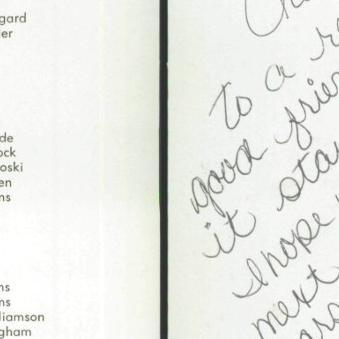 gard
er
de
ock
oski
en
ns
ns
ns
liamson
gham
to a
good frie
it sta
I hope
next